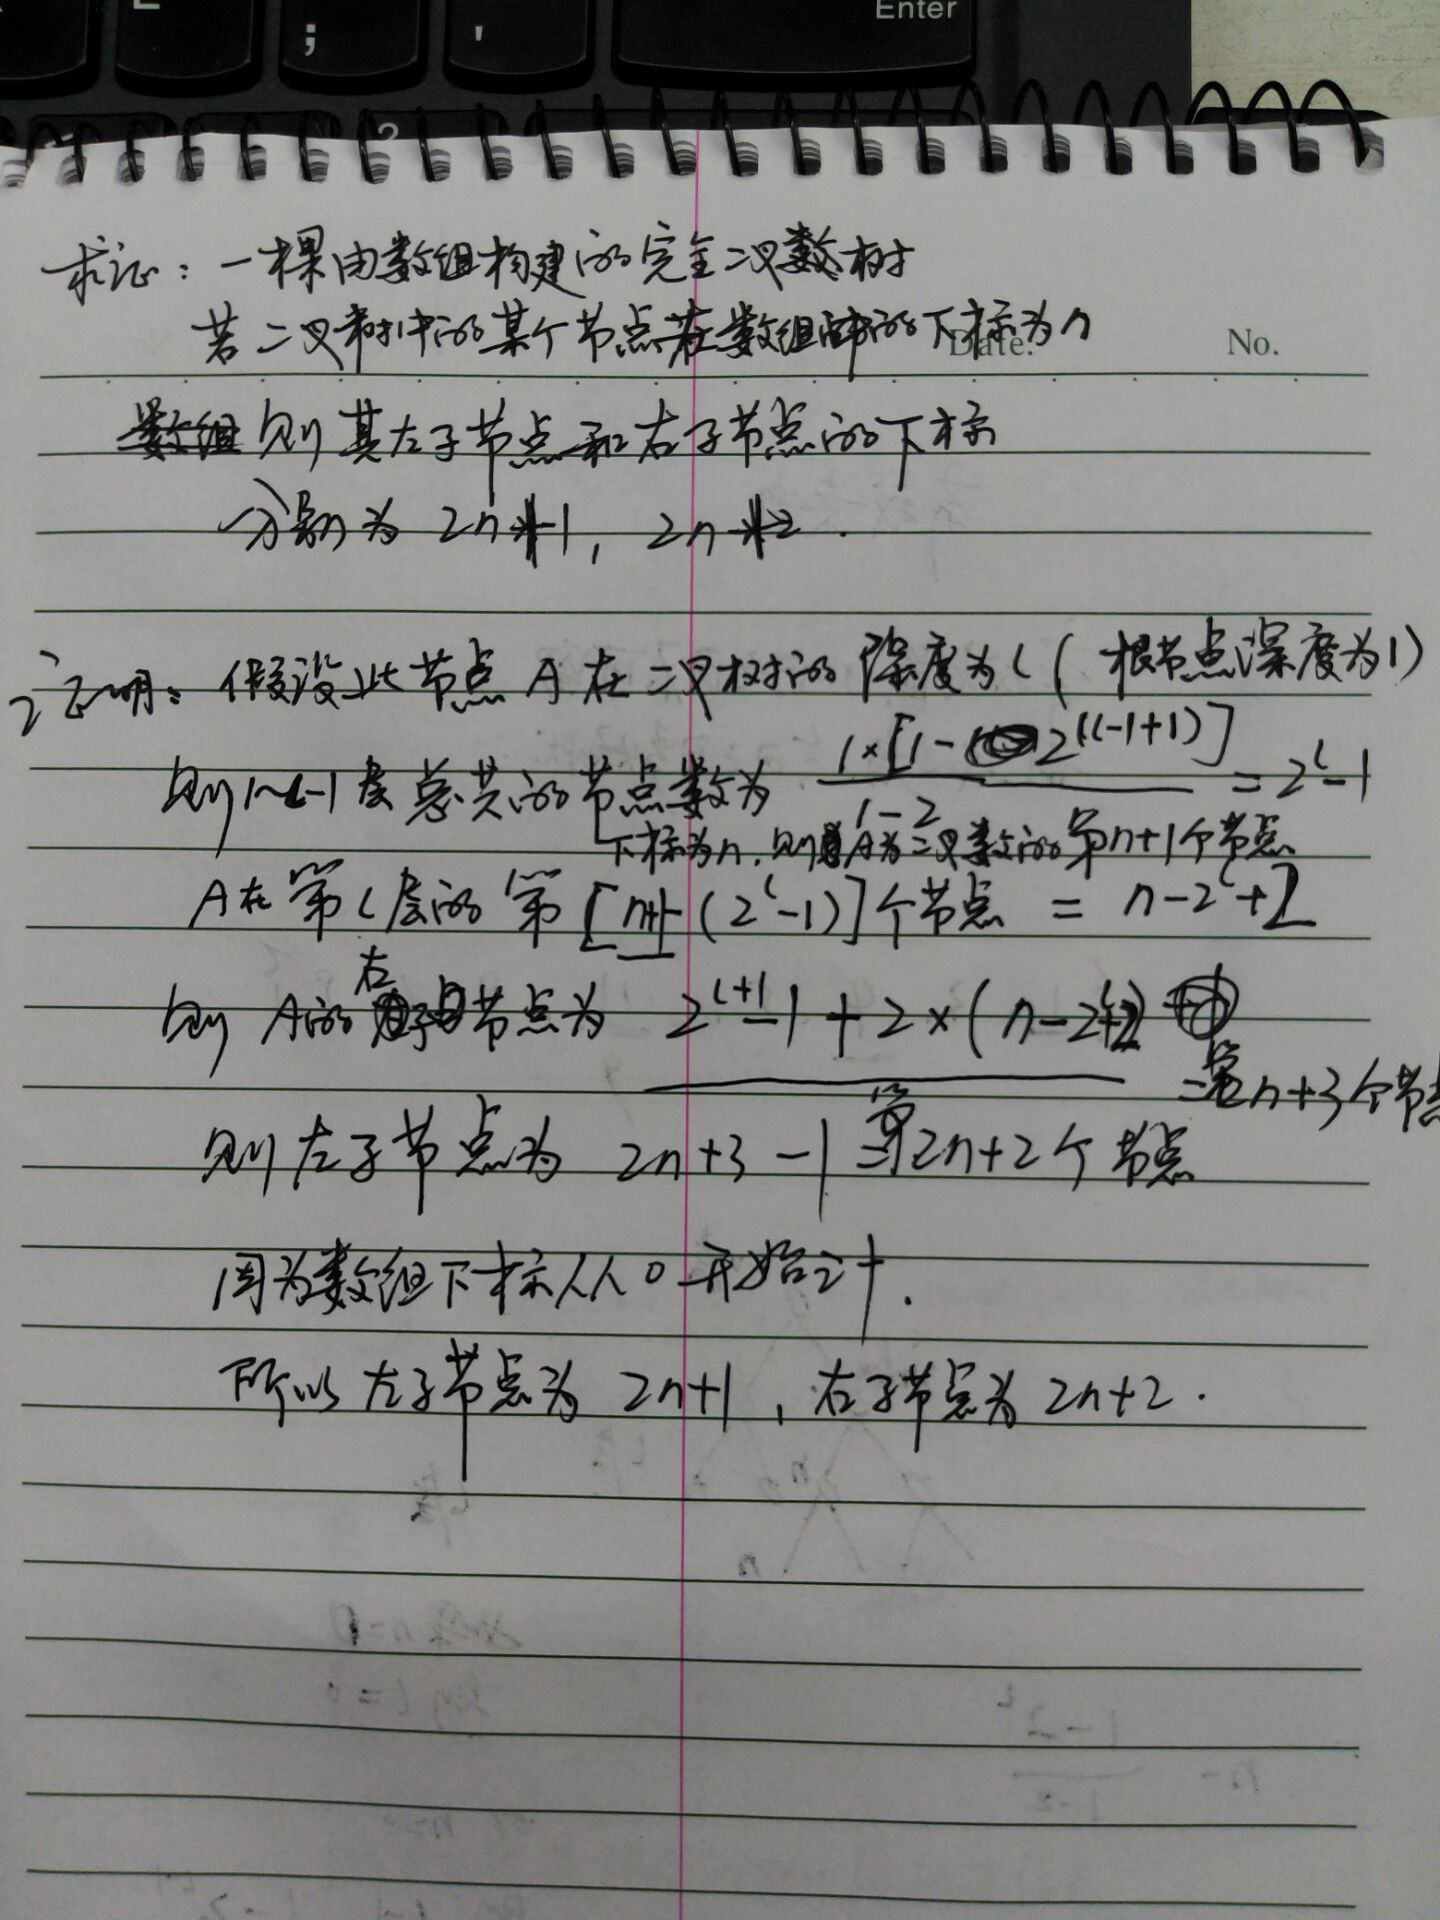 Enter
;
'
求证：一棵由数组构建的完全二叉树
若二叉树中的某个节点在数组中的下标为n
Date.
No.
则其左子节点和右子节点的下标
分别为 2n+1, 2n+2.
证明：假设此节点A在二叉树的深度为L(根节点深度为1)
则1~L-1层总共的节点数为 1×[1-2^(L-1+1)] / 1-2 = 2^L-1
下标为n，则A为二叉数的第n+1个节点
A在第L层的第[n+1-(2^L-1)]个节点 = n-2^L+2
则A的右子节点为 2^(L+1)-1+2×(n-2^L+2)
=第2n+3个节点
则左子节点为 2n+3-1=第2n+2个节点
因为数组下标从0开始计.
所以左子节点为 2n+1, 右子节点为 2n+2.